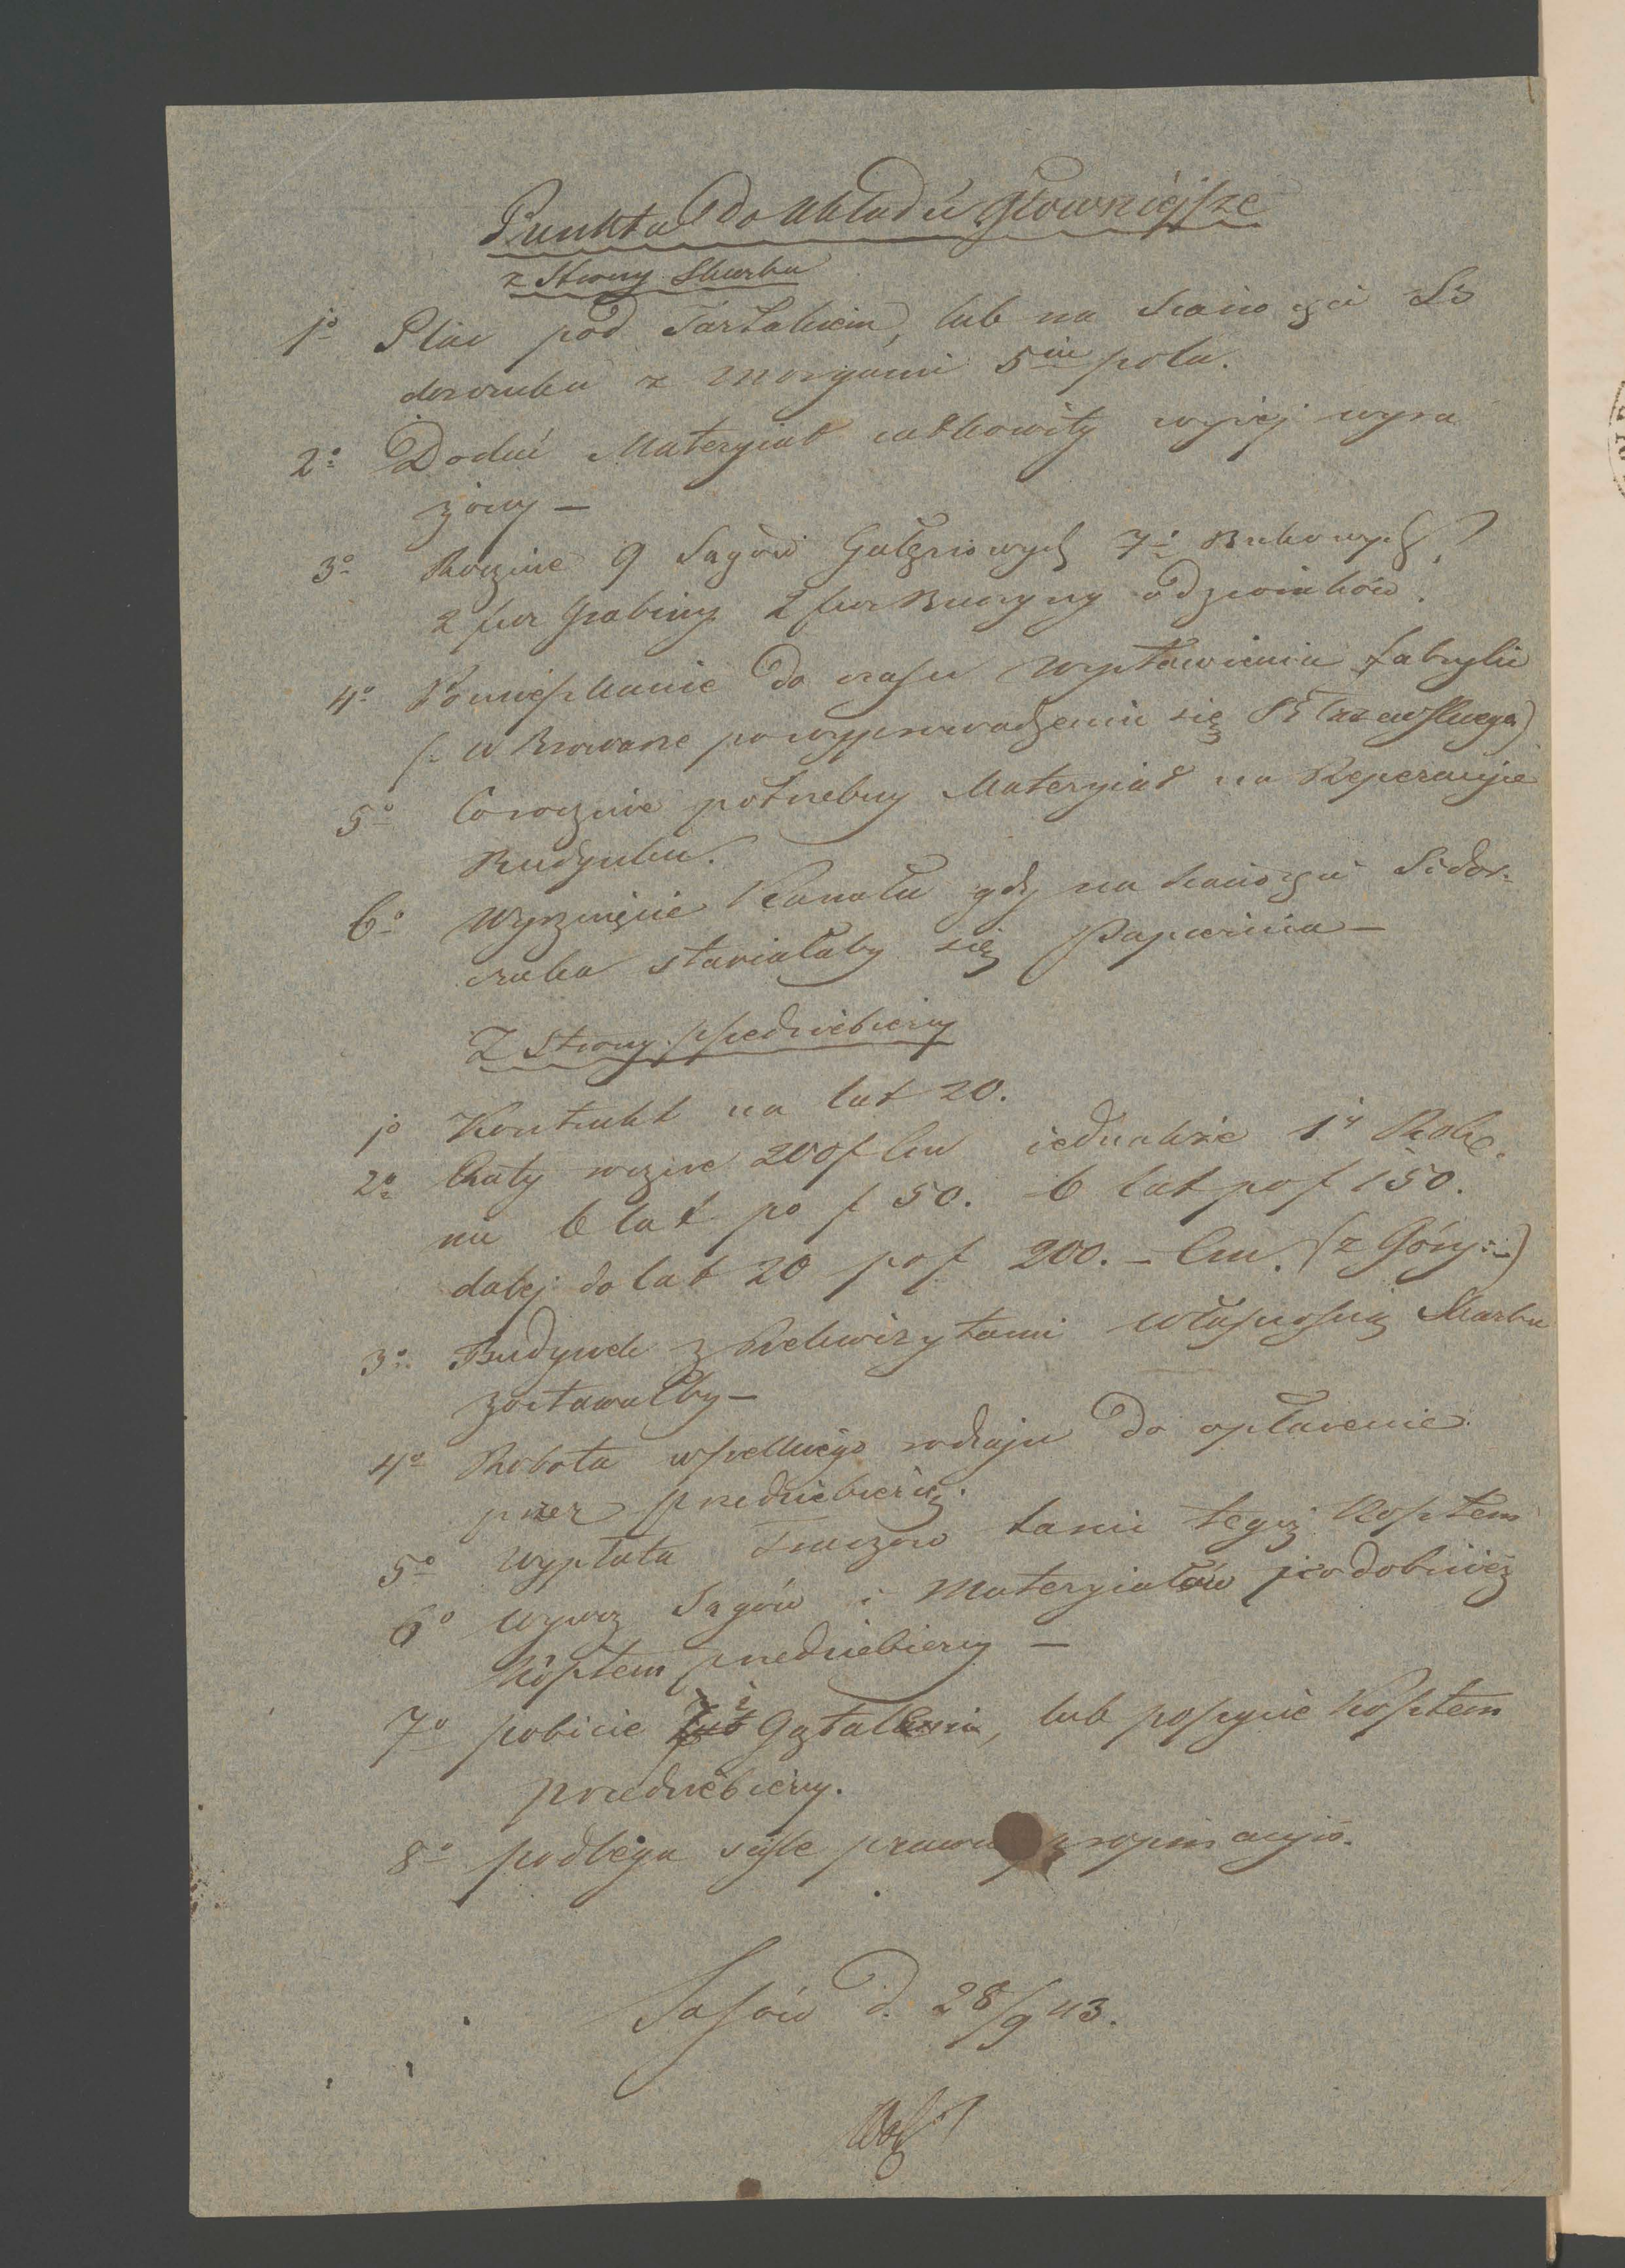 Punkta do Układu główniejsze
z Strony Skarbu
1o Plac pod Tartakiem, lub na Si
doraka z Morgami 5iu pola.
2o Dodać Materyiał całkowity wyżej wyra
żony —
3o Rocznie 9 Sągów Gałęziowych 7i Bukowych?
2 fur Grabiny 2 fur Buczyny odziomków.
4o Pomieszkanie do czasu wystawienia fabryki
(: w Browarze po wyprowadzeniu się
5o Corocznie potrzebny Materyiał na Reperacyie
Budynku.
6o Wyrznięcie Kanału gdy na Sidor-
aka stawiałaby się Papiernia —
Z Strony przedsiebiercy
1o Kontrakt na lat 20.
2o Raty rocznie 200f Cm iednakże 1i Rok
na 6 lat po f 50. 6 lat po f 150.
dalej do lat 20 po f 200. — Cm. (z Góry :)
3o Budynek z Rekwizytami własnością Skarbu
zostawałby —
4o Robota wszelkiego rodzaju do opłacenie
przez przedsiebiercę.
5o Wypłata Traczow tegoż Kosztem
6o wywoz Sągów i Materyiałów podobnież
Kosztem przedsiebiercy —
7o pobicie Gątalemi, lub poszycie Kosztem
przedsiebiercy.
8o podlega scisle prawu propinacyio.
Sasów d. 28/9 43.